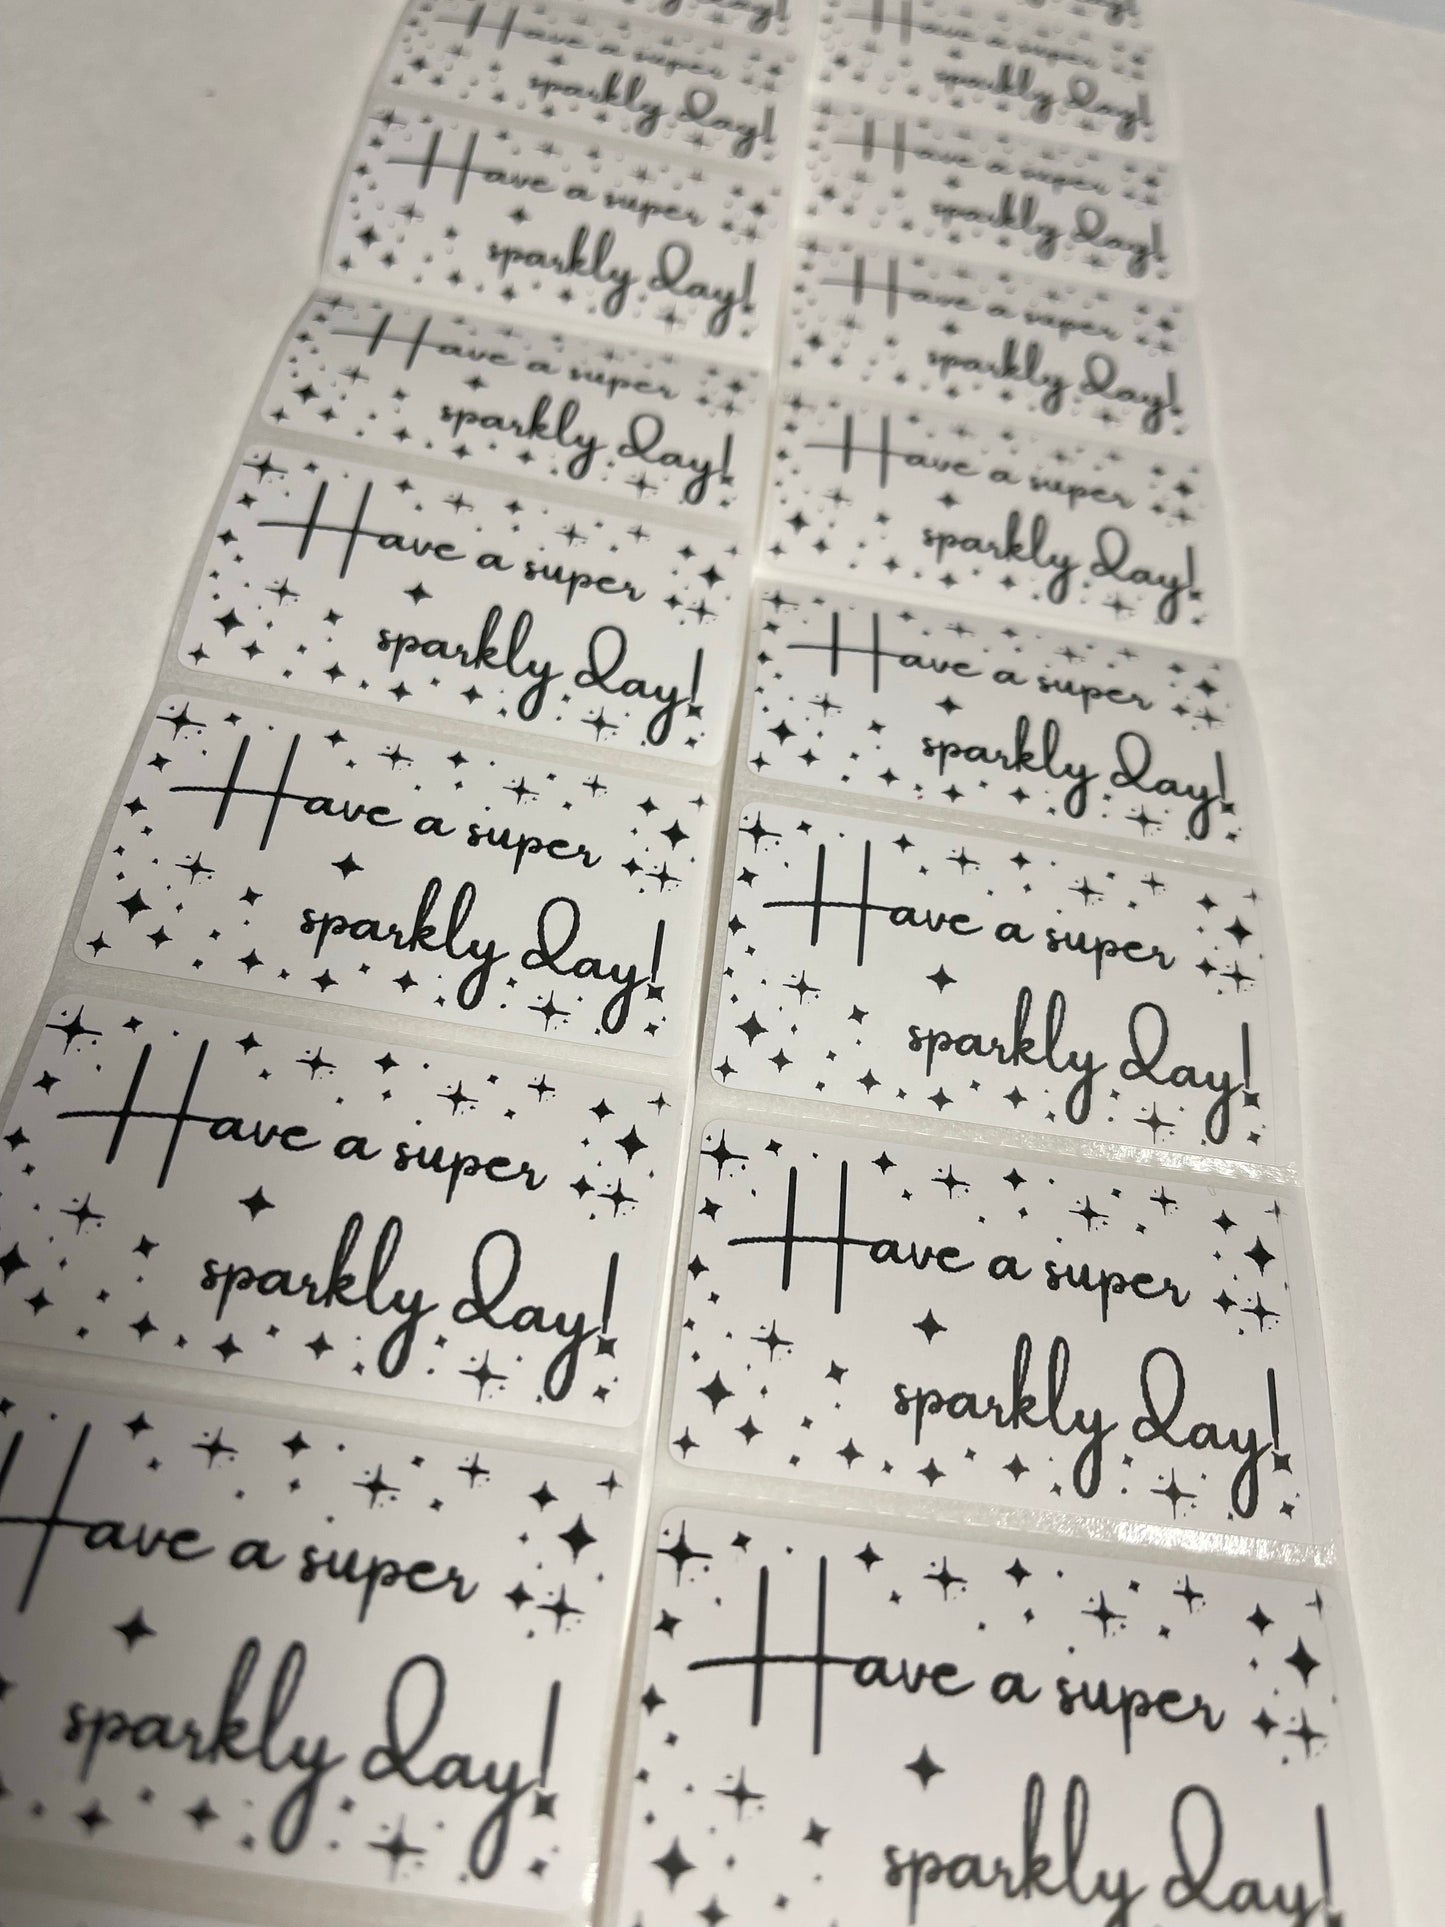 Have a super
sparkly day!
Have a super
sparkly day!
Have a super
sparkly day!
Have a super
sparkly day!
Have a super
sparkly day!
Have a super
sparkly day!
Have a super
sparkly day!
Have a super
sparkly day!
Have a super
sparkly day!
Have a super
sparkly day!
Have a super
sparkly day!
Have a super
sparkly day!
Have a super
sparkly day!
Have a super
sparkly day!
Have a super
sparkly day!